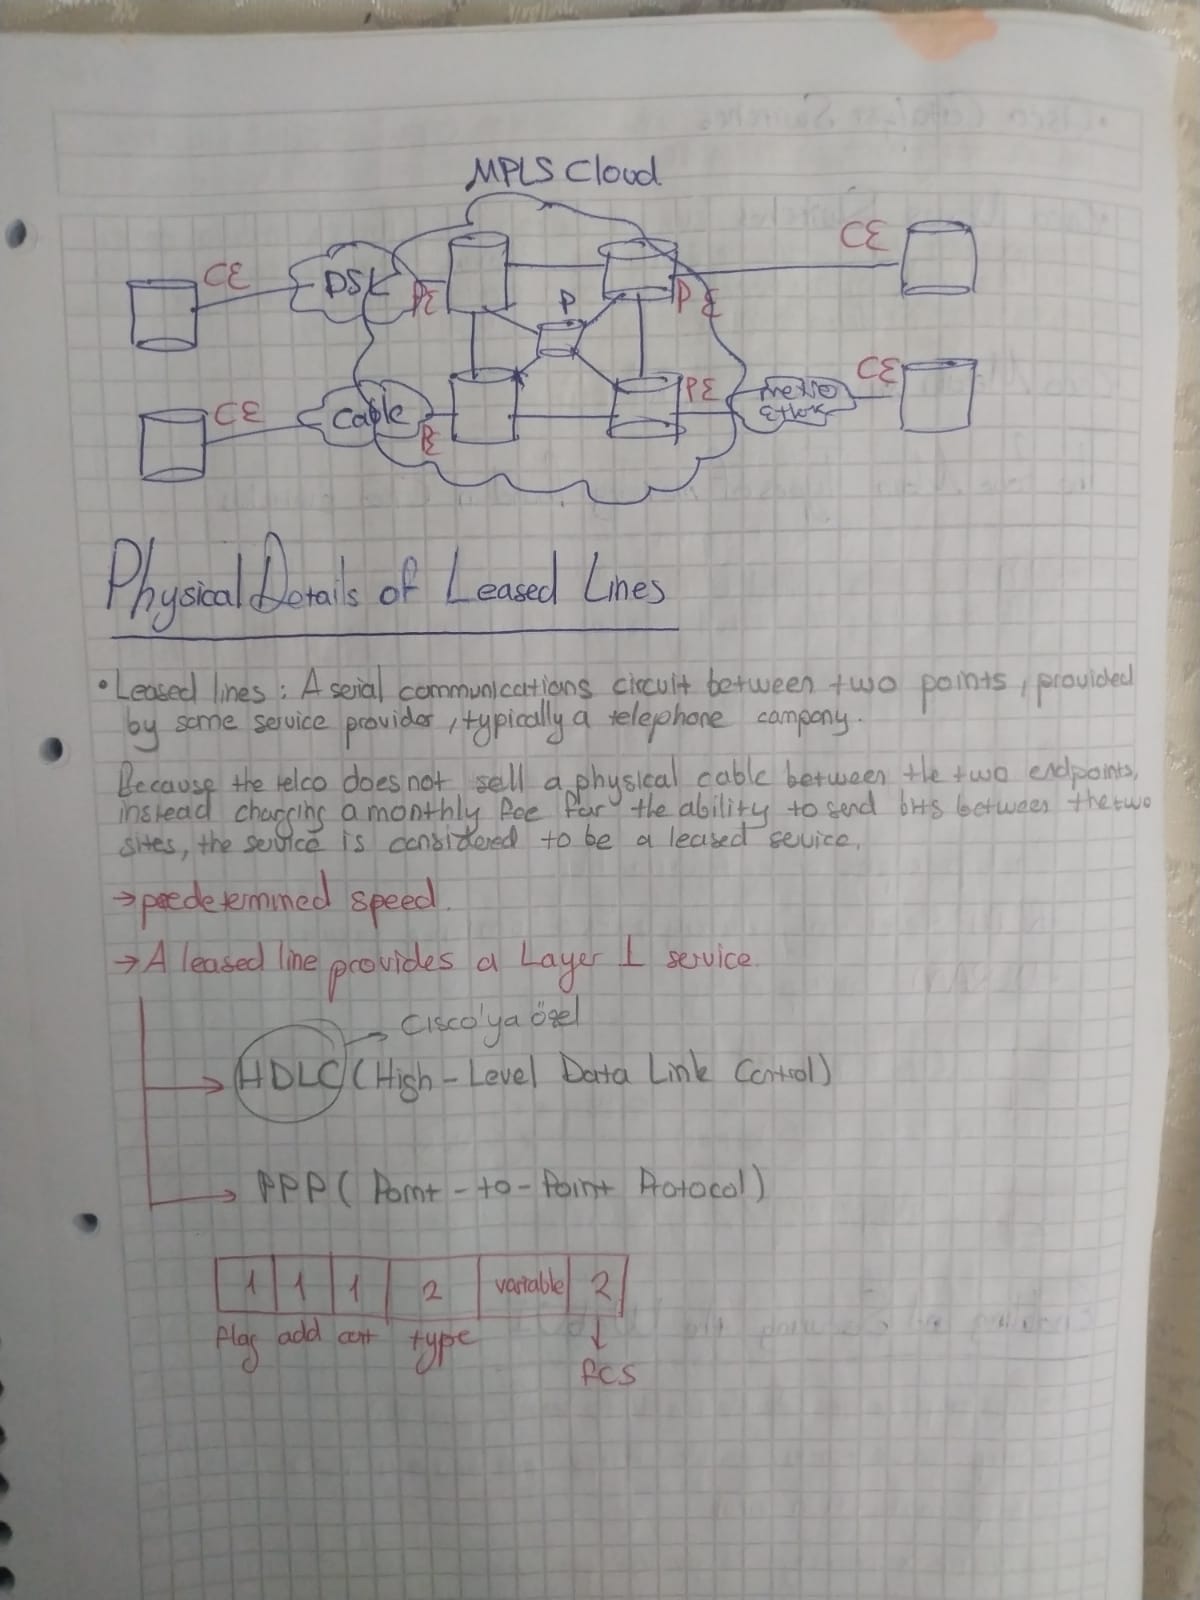 MPLS Cloud
CE
CE
DSL
PE
P
PE
CE
CE
Cable
PE
PE
Metro
CE
Physical Details of Leased Lines
• Leased lines : A serial communications circuit between two points, provided
by some service provider, typically a telephone company.
Because the telco does not sell a physical cable between the two endpoints,
instead charging a monthly fee for the ability to send bits between the two
sites, the service is considered to be a leased service.
→ predetermined speed.
→ A leased line provides a Layer 1 service.
Cisco'ya özel
HDLC (High-Level Data Link Control)
PPP (Point-to-Point Protocol)
1 1 1 2 variable 2
flag add cont type
FCS